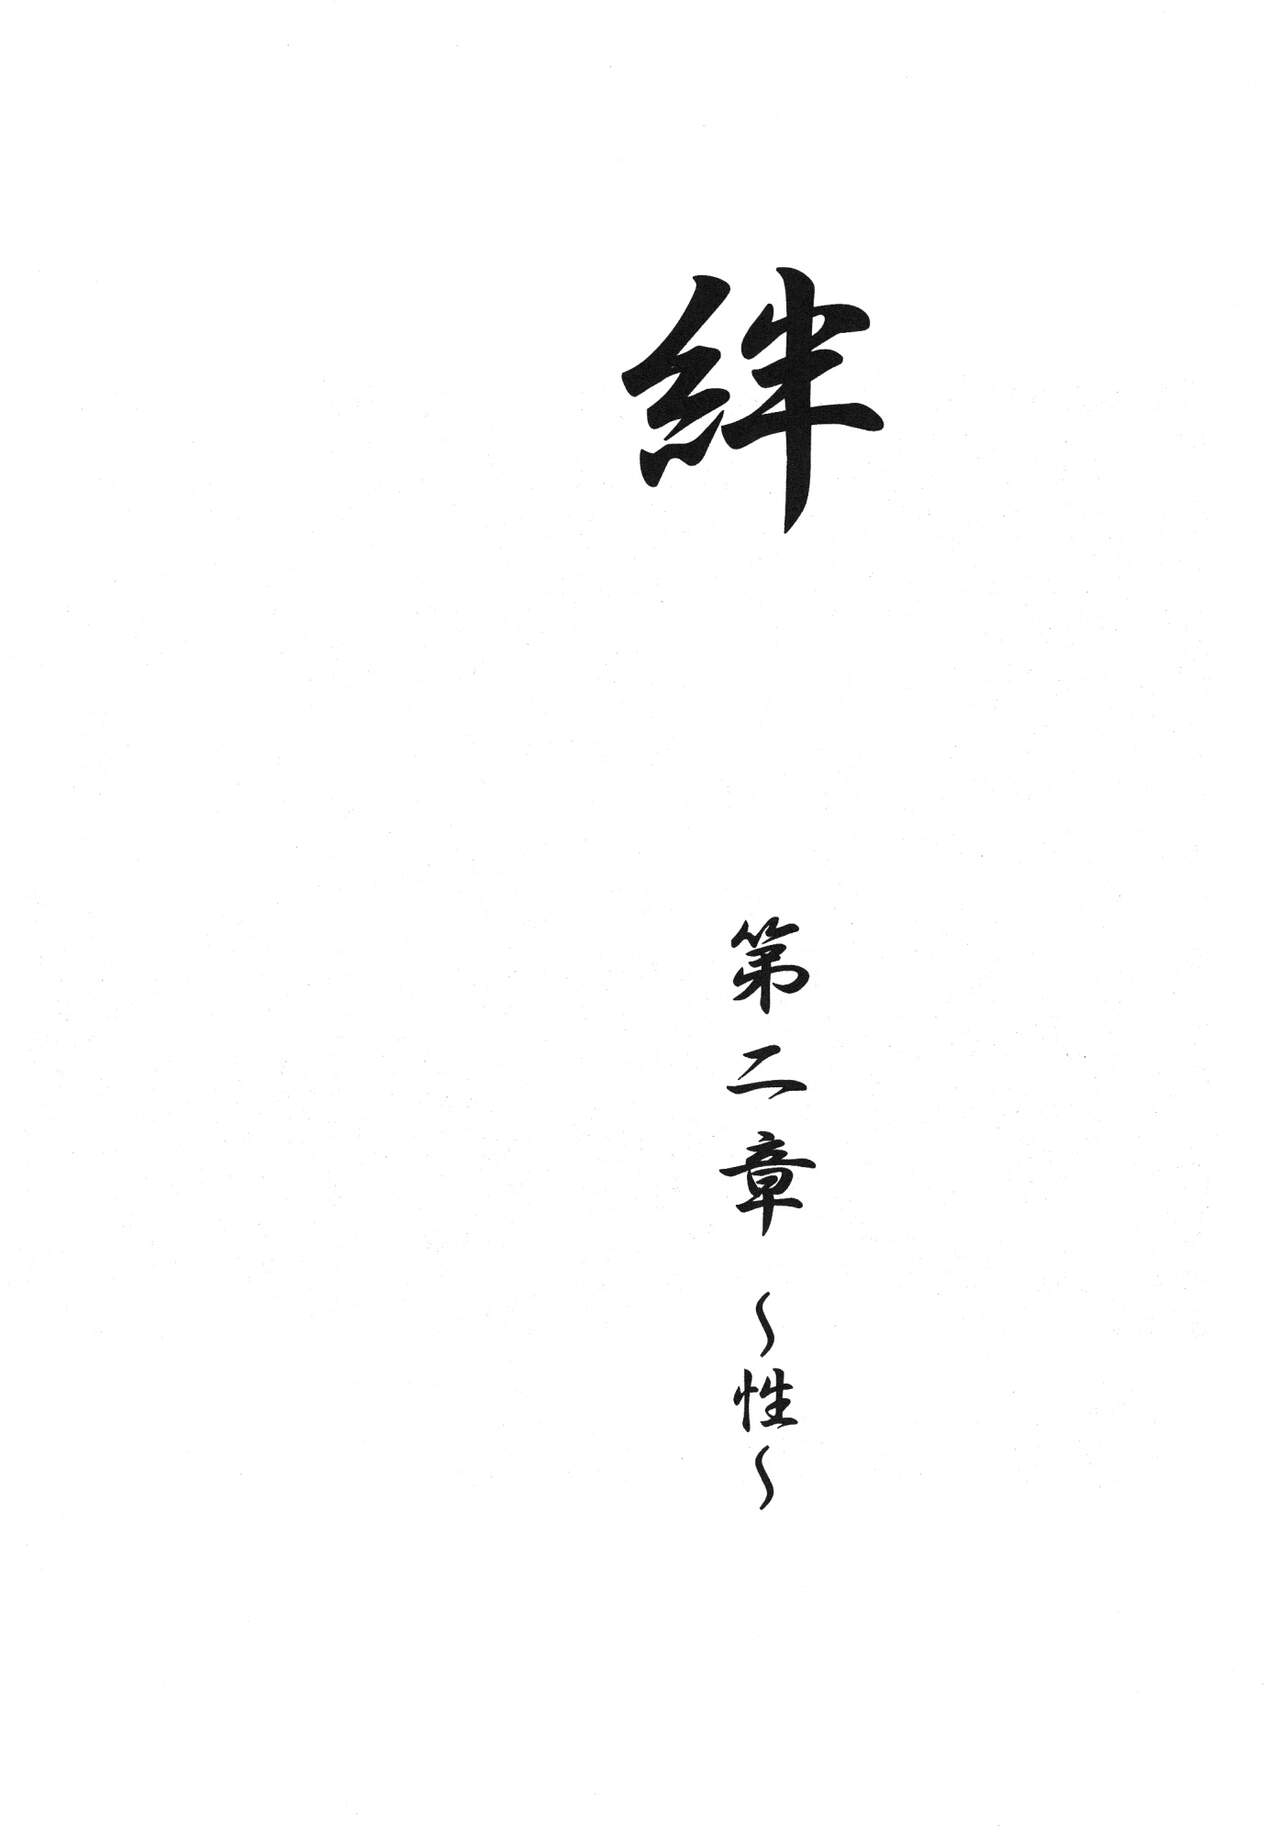 絆
第二章 ~性~